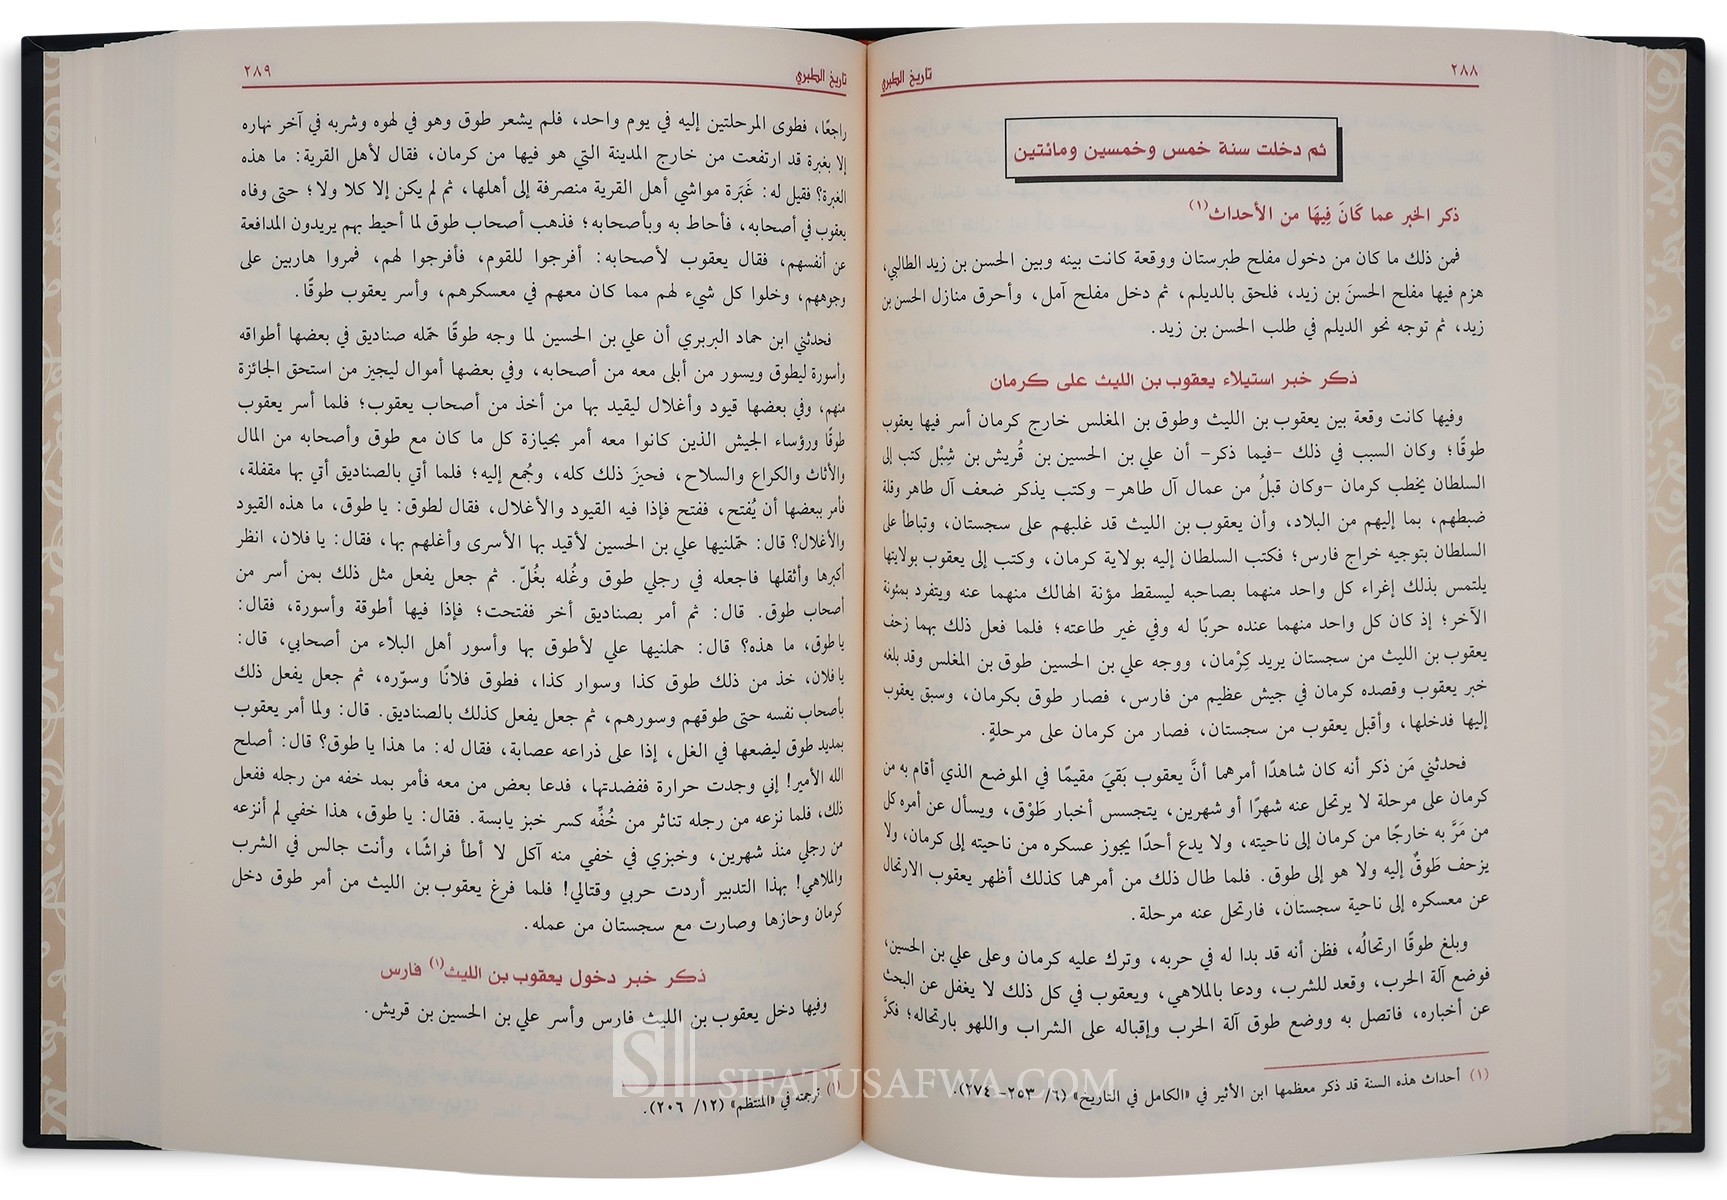 ٢٨٨
تاريخ الطبري
ثم دخلت سنة خمس وخمسين ومائتين
ذكر الخبر عما كَانَ فِيهَا من الأحداث(١)
فمن ذلك ما كان من دخول مفلح طبرستان ووقعة كانت بينه وبين الحسن بن زيد الطالبي،
هزم فيها مفلح الحسنَ بن زيد، فلحق بالديلم، ثم دخل مفلح آمل، وأحرق منازل الحسن بن
زيد، ثم توجه نحو الديلم في طلب الحسن بن زيد.
ذكر خبر استيلاء يعقوب بن الليث على كرمان
وفيها كانت وقعة بين يعقوب بن الليث وطوق بن المغلس خارج كرمان أسر فيها يعقوب
طوقًا؛ وكان السبب في ذلك -فيما ذكر- أن علي بن الحسين بن قُريش بن شِبْل كتب إلى
السلطان يخطب كرمان -وكان قبلُ من عمال آل طاهر- وكتب يذكر ضعف آل طاهر وقلة
ضبطهم، بما إليهم من البلاد، وأن يعقوب بن الليث قد غلبهم على سجستان، وتباطأ على
السلطان بتوجيه خراج فارس؛ فكتب السلطان إليه بولاية كرمان، وكتب إلى يعقوب بولايتها
يلتمس بذلك إغراء كل واحد منهما بصاحبه ليسقط مؤنة الهالك منهما عنه ويتفرد بمئونة
الآخر؛ إذ كان كل واحد منهما عنده حربًا له وفي غير طاعته؛ فلما فعل ذلك بهما زحف
يعقوب بن الليث من سجستان يريد كِرْمان، ووجه علي بن الحسين طوق بن المغلس وقد بلغه
خبر يعقوب وقصده كرمان في جيش عظيم من فارس، فصار طوق بكرمان، وسبق يعقوب
إليها فدخلها، وأقبل يعقوب من سجستان، فصار من كرمان على مرحلةٍ.
فحدثني مَن ذكر أنه كان شاهدًا أمرهما أنَّ يعقوب بَقيَ مقيمًا في الموضع الذي أقام به من
كرمان على مرحلة لا يرتحل عنه شهرًا أو شهرين، يتجسس أخبار طَوْق، ويسأل عن أمره كل
من مَرَّ به خارجًا من كرمان إلى ناحيته، ولا يدع أحدًا يجوز عسكره من ناحيته إلى كرمان، ولا
يزحف طَوقٌ إليه ولا هو إلى طوق. فلما طال ذلك من أمرهما كذلك أظهر يعقوب الارتحال
عن معسكره إلى ناحية سجستان، فارتحل عنه مرحلة.
وبلغ طوقًا ارتحالُه، فظن أنه قد بدا له في حربه، وترك عليه كرمان وعلى علي بن الحسين،
فوضع آلة الحرب، وقعد للشرب، ودعا بالملاهي، ويعقوب في كل ذلك لا يغفل عن البحث
عن أخباره، فاتصل به ووضع طوق آلة الحرب وإقباله على الشراب واللهو بارتحاله؛ فكرَّ
(١) أحداث هذه السنة قد ذكر معظمها ابن الأثير في «الكامل في التاريخ» (٦/ ٢٥٣- ٢٧٤).
تاريخ الطبري
٢٨٩
راجعًا، فطوى المرحلتين إليه في يوم واحد، فلم يشعر طوق وهو في لهوه وشربه في آخر نهاره
إلا بغبرة قد ارتفعت من خارج المدينة التي هو فيها من كرمان، فقال لأهل القرية: ما هذه
الغبرة؟ فقيل له: غَبَرة مواشي أهل القرية منصرفة إلى أهلها، ثم لم يكن إلا كلا ولا؛ حتى وفاه
يعقوب في أصحابه، فأحاط به وبأصحابه؛ فذهب أصحاب طوق لما أحيط بهم يريدون المدافعة
عن أنفسهم، فقال يعقوب لأصحابه: أفرجوا للقوم، فأفرجوا لهم، فمروا هاربين على
وجوههم، وخلوا كل شيء لهم مما كان معهم في معسكرهم، وأسر يعقوب طوقًا.
فحدثني ابن حماد البربري أن علي بن الحسين لما وجه طوقًا حمّله صناديق في بعضها أطواقه
وأسورة ليطوق ويسور من أبلى معه من أصحابه، وفي بعضها أموال ليجيز من استحق الجائزة
منهم، وفي بعضها قيود وأغلال ليقيد بها من أخذ من أصحاب يعقوب؛ فلما أسر يعقوب
طوقًا ورؤساء الجيش الذين كانوا معه أمر بحيازة كل ما كان مع طوق وأصحابه من المال
والأثاث والكراع والسلاح، فحيزَ ذلك كله، وجُمع إليه؛ فلما أتي بالصناديق أتي بها مقفلة،
فأمر ببعضها أن يُفتح، ففتح فإذا فيه القيود والأغلال، فقال لطوق: يا طوق، ما هذه القيود
والأغلال؟ قال: حمّلنيها علي بن الحسين لأقيد بها الأسرى وأغلهم بها، فقال: يا فلان، انظر
أكبرها وأثقلها فاجعله في رجلي طوق وغُله بغُلّ. ثم جعل يفعل مثل ذلك بمن أسر من
أصحاب طوق. قال: ثم أمر بصناديق أخر ففتحت؛ فإذا فيها أطوقة وأسورة، فقال:
يا طوق، ما هذه؟ قال: حملنيها علي لأطوق بها وأسور أهل البلاء من أصحابي، قال:
يا فلان، خذ من ذلك طوق كذا وسوار كذا، فطوق فلانًا وسوّره، ثم جعل يفعل ذلك
بأصحاب نفسه حتى طوقهم وسورهم، ثم جعل يفعل كذلك بالصناديق. قال: ولما أمر يعقوب
بمديد طوق ليضعها في الغل، إذا على ذراعه عصابة، فقال له: ما هذا يا طوق؟ قال: أصلح
الله الأمير! إني وجدت حرارة ففضدتها، فدعا بعض من معه فأمر بمد خفه من رجله ففعل
ذلك، فلما نزعه من رجله تناثر من خُفِّه كسر خبز يابسة. فقال: يا طوق، هذا خفي لم أنزعه
من رجلي منذ شهرين، وخبزي في خفي منه آكل لا أطأ فراشًا، وأنت جالس في الشرب
والملاهي! بهذا التدبير أردت حربي وقتالي! فلما فرغ يعقوب بن الليث من أمر طوق دخل
كرمان وحازها وصارت مع سجستان من عمله.
ذكر خبر دخول يعقوب بن الليث(١) فارس
وفيها دخل يعقوب بن الليث فارس وأسر علي بن الحسين بن قريش.
(١) ترجمته في «المنتظم» (١٢/ ٢٠٦).
SIFATUSAFWA.COM